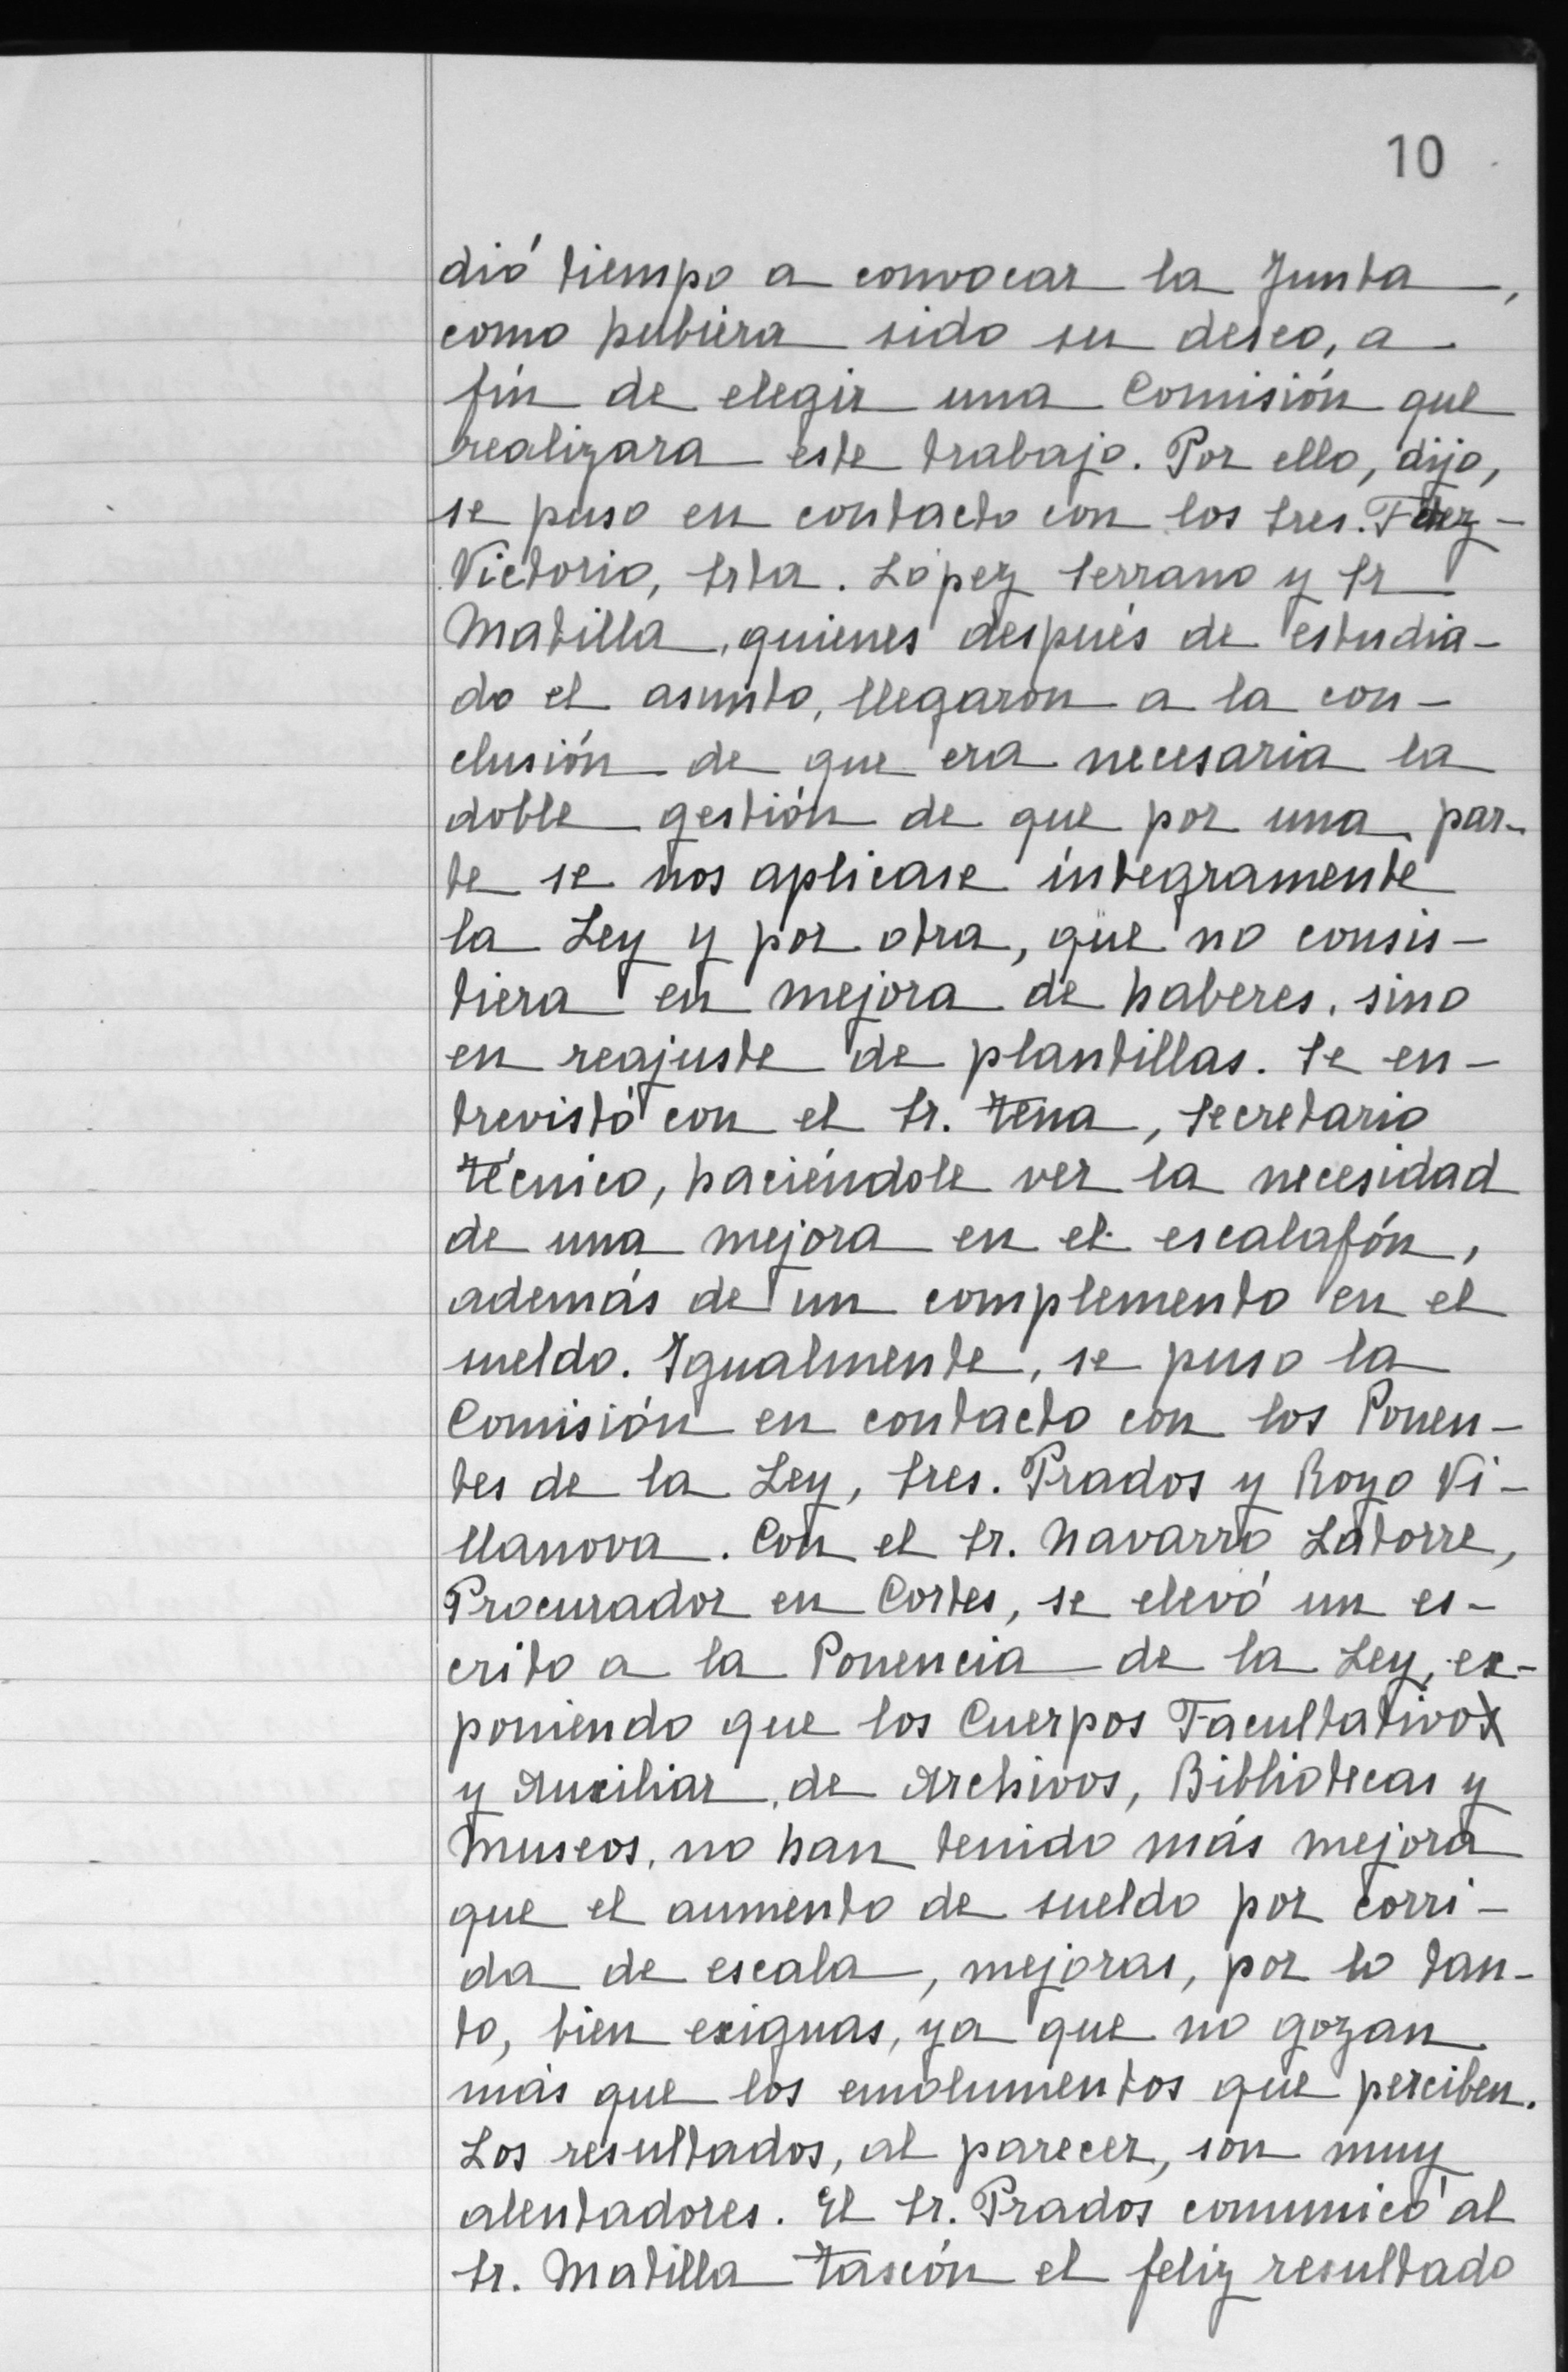 10
dió tiempo a convocar la Junta,
como hubiera sido su deseo, a
fín de elegir una Comisión que
realizara este trabajo. Por ello, dijo,
se puso en contacto con los Sres. Fdez-
Victorio, Srta. López Serrano y Sr
Matilla, quienes después de estudia-
do el asunto, llegaron a la con-
clusión de que era necesaria la
doble gestión de que por una par-
te se nos aplicase íntegramente
la Ley y por otra, que no consis-
tiera en mejora de haberes, sino
en reajuste de plantillas. Se en-
trevistó con el Sr. Tena, Secretario
Técnico, haciéndole ver la necesidad
de una mejora en el escalafón,
además de un complemento en el
sueldo. Igualmente, se puso la
Comisión en contacto con los Ponen-
tes de la Ley, Sres. Prados y Royo Vi-
llanova. Con el Sr. Navarro Latorre,
Procurador en Cortes, se elevó un es-
crito a la Ponencia de la Ley, ex-
poniendo que los Cuerpos Facultativo
y Auxiliar, de Archivos, Bibliotecas y
Museos, no han tenido más mejora
que el aumento de sueldo por corri-
da de escala, mejoras, por lo tan-
to, bien exiguas, ya que no gozan
más que los emolumentos que perciben.
Los resultados, al parecer, son muy
alentadores. El Sr. Prados comunicó al
Sr. Matilla Tascón el feliz resultado